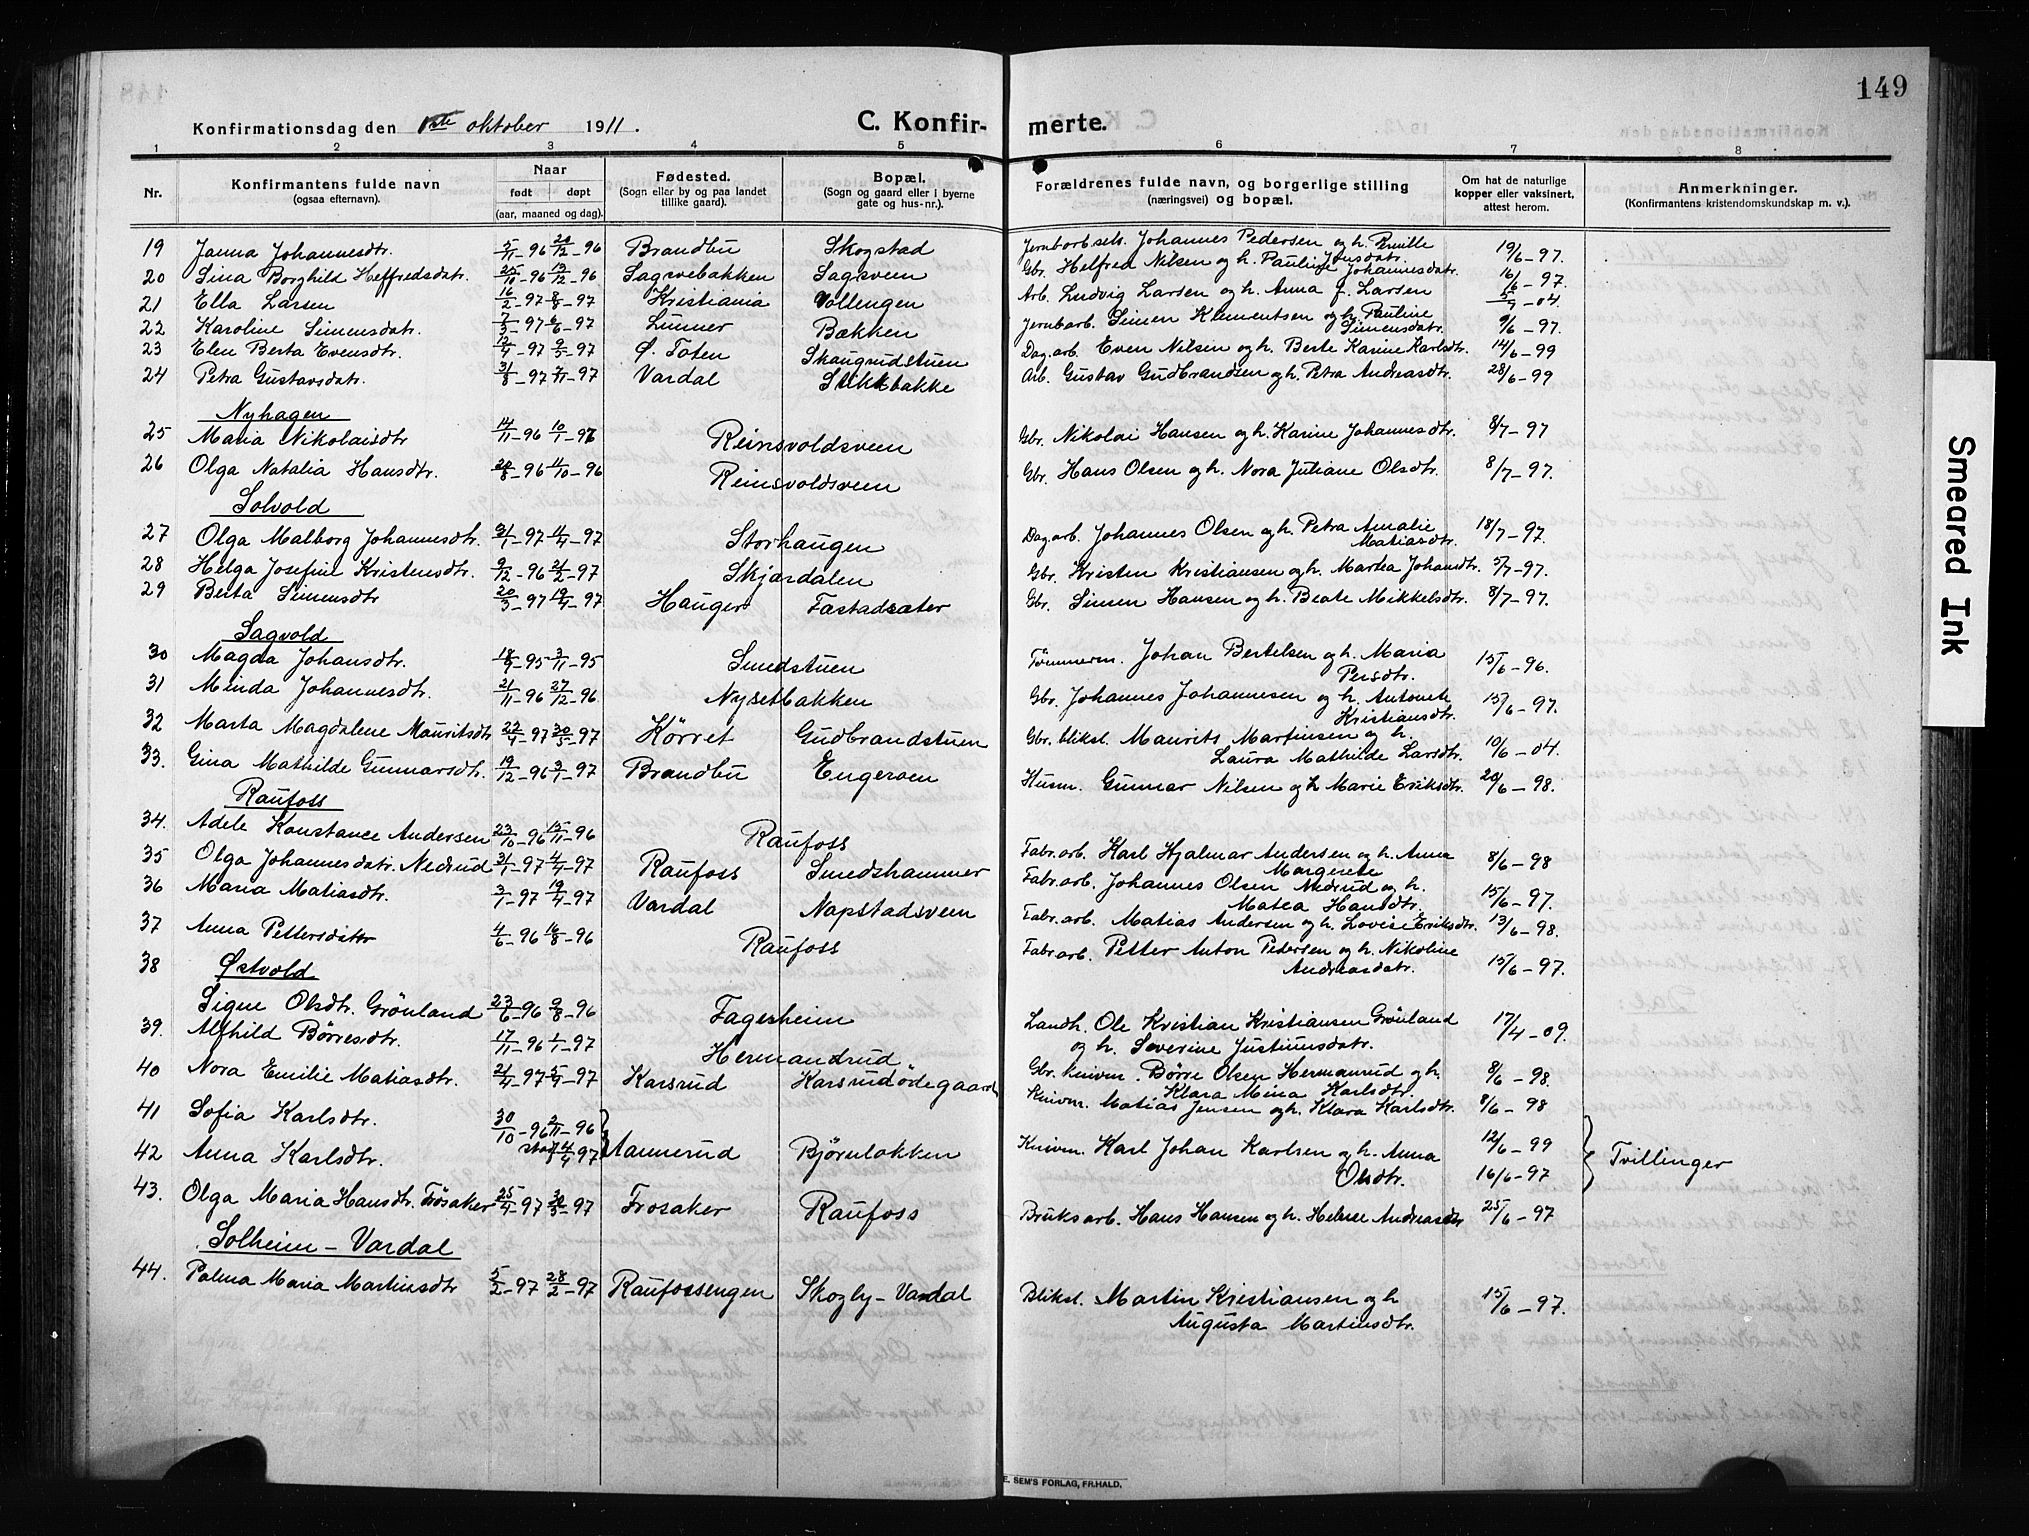 149
Konfirmationsdag den 1ste oktober 1911.
C. Konfir- merte.
1 2 3 4 5 6 7 8
Nr. Konfirmantens fulde navn (ogsaa efternavn). Naar født døpt (aar, maaned og dag). Fødested. (Sogn eller by og paa landet tillike gaard). Bopæl. (Sogn og gaard eller i byerne gate og hus-nr.). Forældrenes fulde navn, og borgerlige stilling (næringsvei) og bopæl. Om hat de naturlige kopper eller vaksinert, attest herom. Anmerkninger. (Konfirmantens kristendomskundskap m. v.).
19 Janna Johannesdtr. 5/11-96 20/12-96 Brandbu Skogstad Jernbarb.selv. Johannes Pedersen og h. Pernille Jonsdatr. 19/6-97.
20 Lina Borghild Helfredsdatr. 25/10-96 13/12-96 Sagsvebakken Sagsveen Gbr. Helfred Nilsen og h. Pauline Johannesdatr. 16/6-97.
21 Ella Larsen 16/2-97 8/8-97 Kristiania Vollengen Arb. Ludvig Larsen og h. Anna f. Larsen 5/7-04.
22 Karoline Simensdatr. 7/3-97 6/6-97 Lunner Bækken Jernbarb. Simen Klementsen og h. Pauline Simensdatr. 9/6-97.
23 Elen Berta Evensdtr. 12/4-97 9/5-97 Ø. Toten Skaugrudstuen Dag.arb. Even Nilsen og h. Berte Karine Karlsdtr. 14/6-99
24 Petra Gustavsdatr. 31/8-97 7/11-97 Vardal Slikkbakke Arb. Gustav Gudbrandsen og h. Petra Andreasdtr. 28/6-99
Nyhagen
25 Maria Nikolaisdtr 14/11-96 10/1-97 Reinsvoldsveen Gbr. Nikolai Hansen og h. Karine Johannesdtr. 8/7-97
26 Olga Natalia Hansdtr. 20/8-96 11/10-96 Reinsvoldsveen Gbr. Hans Olsen og h. Nora Juliane Olsdtr. 8/7-97.
Solvold
27 Olga Malborg Johannesdtr. 31/1-97 11/4-97 Storhaugen Dag.arb. Johannes Olsen og h. Petra Amalie Matiasdtr. 18/7-97.
28 Helga Josefine Kristensdtr. 9/12-96 21/2-97 Skjærdalen Gbr. Kristen Kristiansen og h. Martea Johansdtr. 5/7-97.
29 Berta Simensdtr 20/3-97 19/4-97 Hauger Fastadsæter Gbr. Simen Hansen og h. Beate Mikkelsdtr. 8/7-97.
Sagvold
30 Magda Johansdtr. 18/9-95 3/11-95 Smedstuen Tömmerm. Johan Bertelsen og h. Maria Persdtr. 15/6-96.
31 Minda Johannesdtr. 21/11-96 27/12-96 Nysetbakken Gbr. Johannes Johannesen og h. Antonete Kristiansdtr. 15/6-97.
32 Marta Magdalene Mauritsdtr 22/4-97 30/5-97 Körret Gudbrandstuen Gbr. bliksl. Maurits Martinsen og h. Laura Mathilde Larsdtr. 10/6-04.
33. Gina Mathilde Gunnarsdtr. 19/12-96 3/1-97 Brandbu Engerven Husm. Gunnar Nilsen og h Marie Eriksdtr. 20/6-98.
Raufoss
34. Adele Konstance Andersen 23/10-96 15/11-96 Raufoss Fabr.arb. Karl Hjalmar Andersen og h. Anna Margrete 8/6-98
35 Olga Johannesdatr. Nedrud 31/1-97 4/4-97 Raufoss Smedshammer Fabr.arb. Johannes Olsen Nedrud og h. Matea Hansdtr. 15/6-97.
36 Maria Matiasdtr. 3/1-97 19/4-97 Vardal Napstadsveen Fabr.arb. Matias Andersen og h. Lovise Eriksdtr. 13/6-98.
37 Anna Pettersdatter 4/6-96 16/8-96 Raufoss Fabr.arb. Petter Anton Pedersen og h. Nikoline Andreasdatr. 15/6-97.
38 Østvold
Signe Olsdtr. Grönland 23/6-96 9/8-96 Fagerheim Landh. Ole Kristian Kristiansen Grönland og h. Severine Justinusdatr. 17/4-09.
39. Alfhild Börresdtr. 17/11-96 1/1-97 Hermandsrud Gbr. knivm. Börre Olsen Hermanrud og h. Klara Mina Karlsdtr. 8/6-98.
40 Nora Emilie Matiasdtr. 21/4-97 5/7-97 Karsrud Karsrudødegaard Knivm. Matias Jensen og h. Klara Karlsdtr. 8/6-98
41 Sofia Karlsdtr. 30/10-96 7/11-96
42 Anna Karlsdtr. Aannerud Björnlökken Knivm. Karl Johan Karlsen og h. Anna Olsdtr. 12/6-99 16/6-97 Tvillinger
43. Olga Maria Hansdtr. Frösaker 25/4-97 30/5-97 Frosaker Raufoss Bruksarb. Hans Hansen og h. Helene Andreasdtr 25/6-97
Solheim - Vardal
44. Palma Maria Martinsdtr 5/2-97 28/2-97 Raufossengen Skogly - Vardal Bliksl. Martin Kristiansen og h Augusta Martinsdtr. 15/6-97.
E. SEM'S FORLAG, FR.HALD.
Smeared Ink